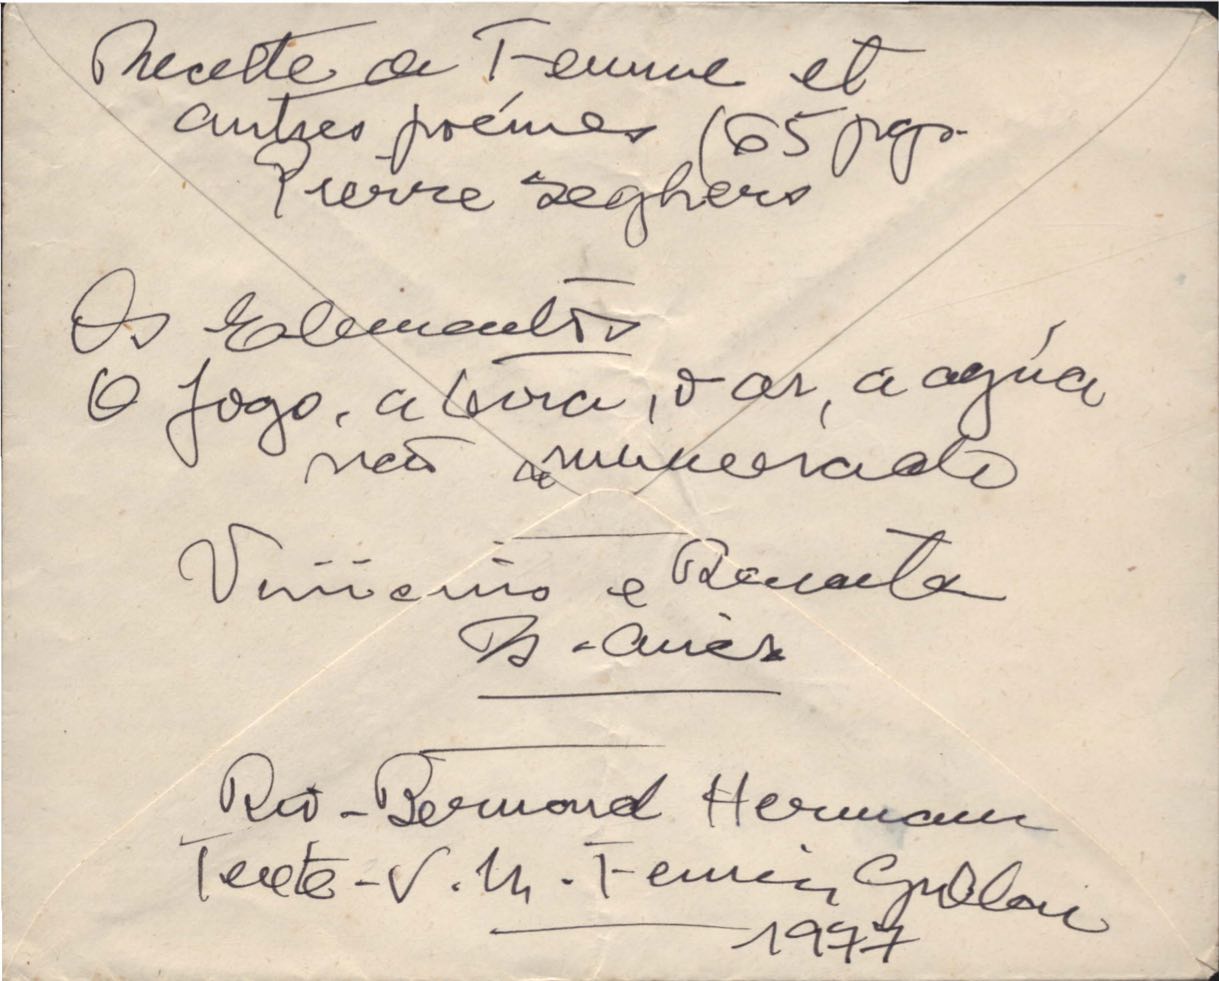 Recette de Femme et
autres poémes (65 pags.
Pierre Seghers
Os Elementos
O fogo, a terra, o ar, a agúa
não numerado
Vinicius e Renata
B-Aires
Rio-Bernard Hermann
Texte-V.M. Fermin Guillou
1977